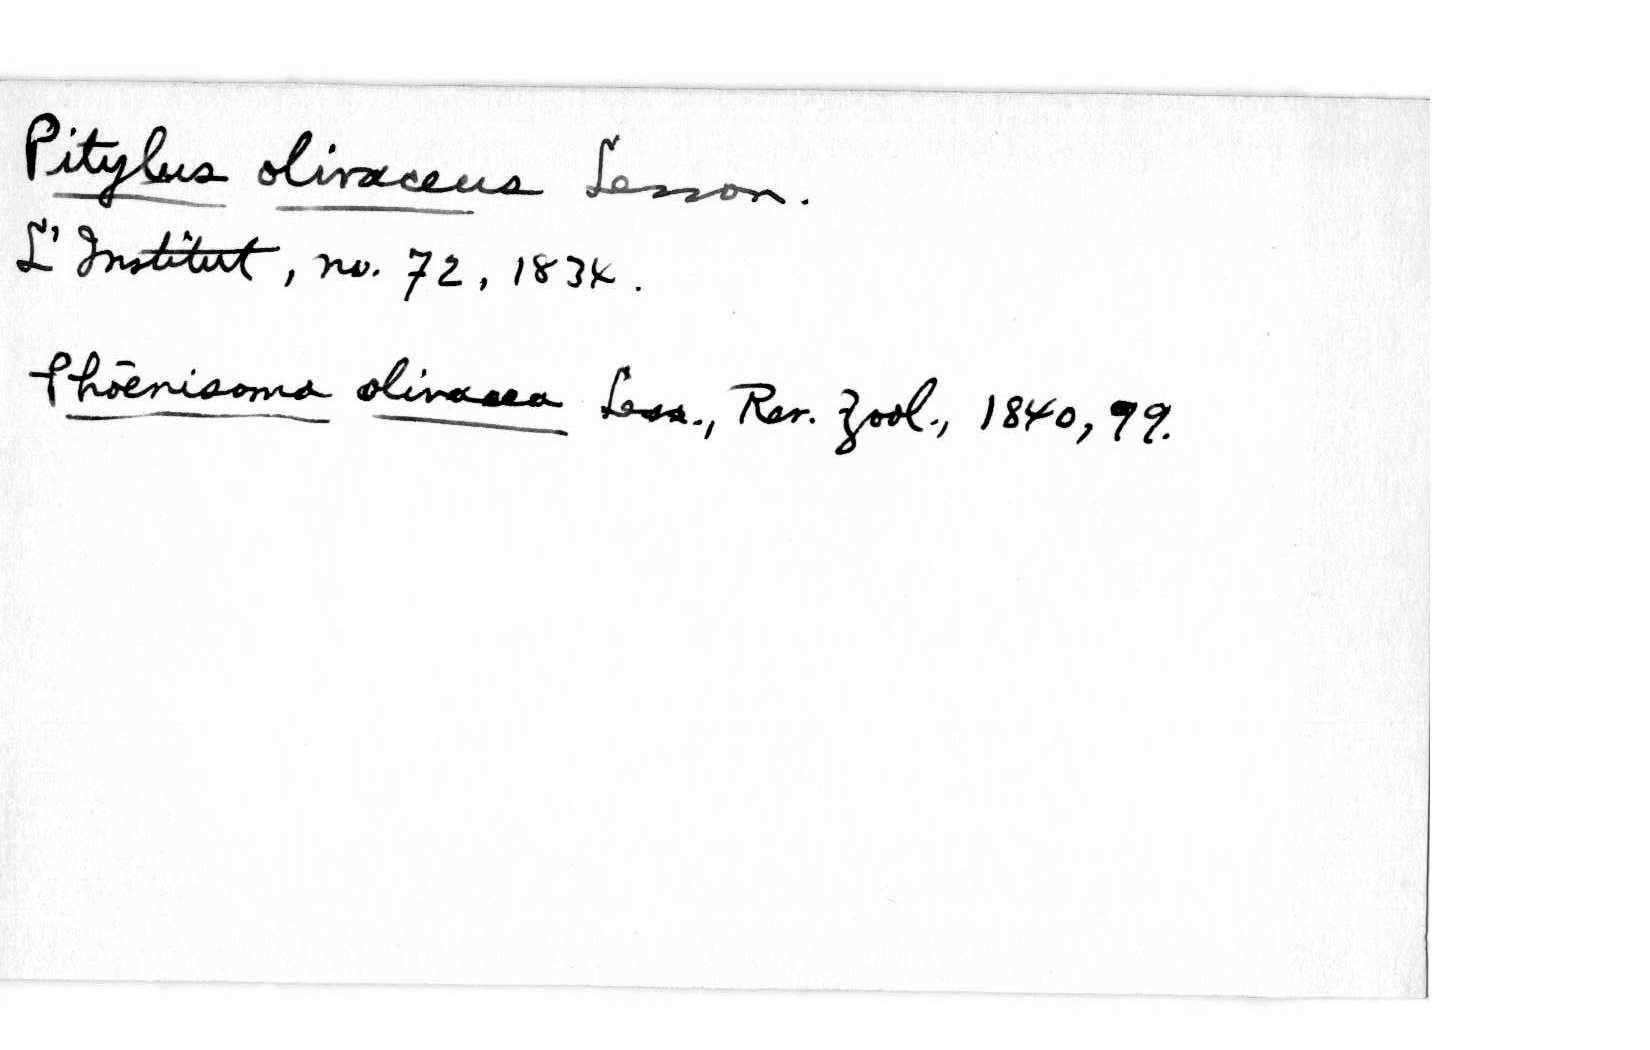 Pitylus olivaceus Lesson.
L'Institut, no. 72, 1834.
Phoenisoma olivacea Less., Rev. Zool., 1840, 99.